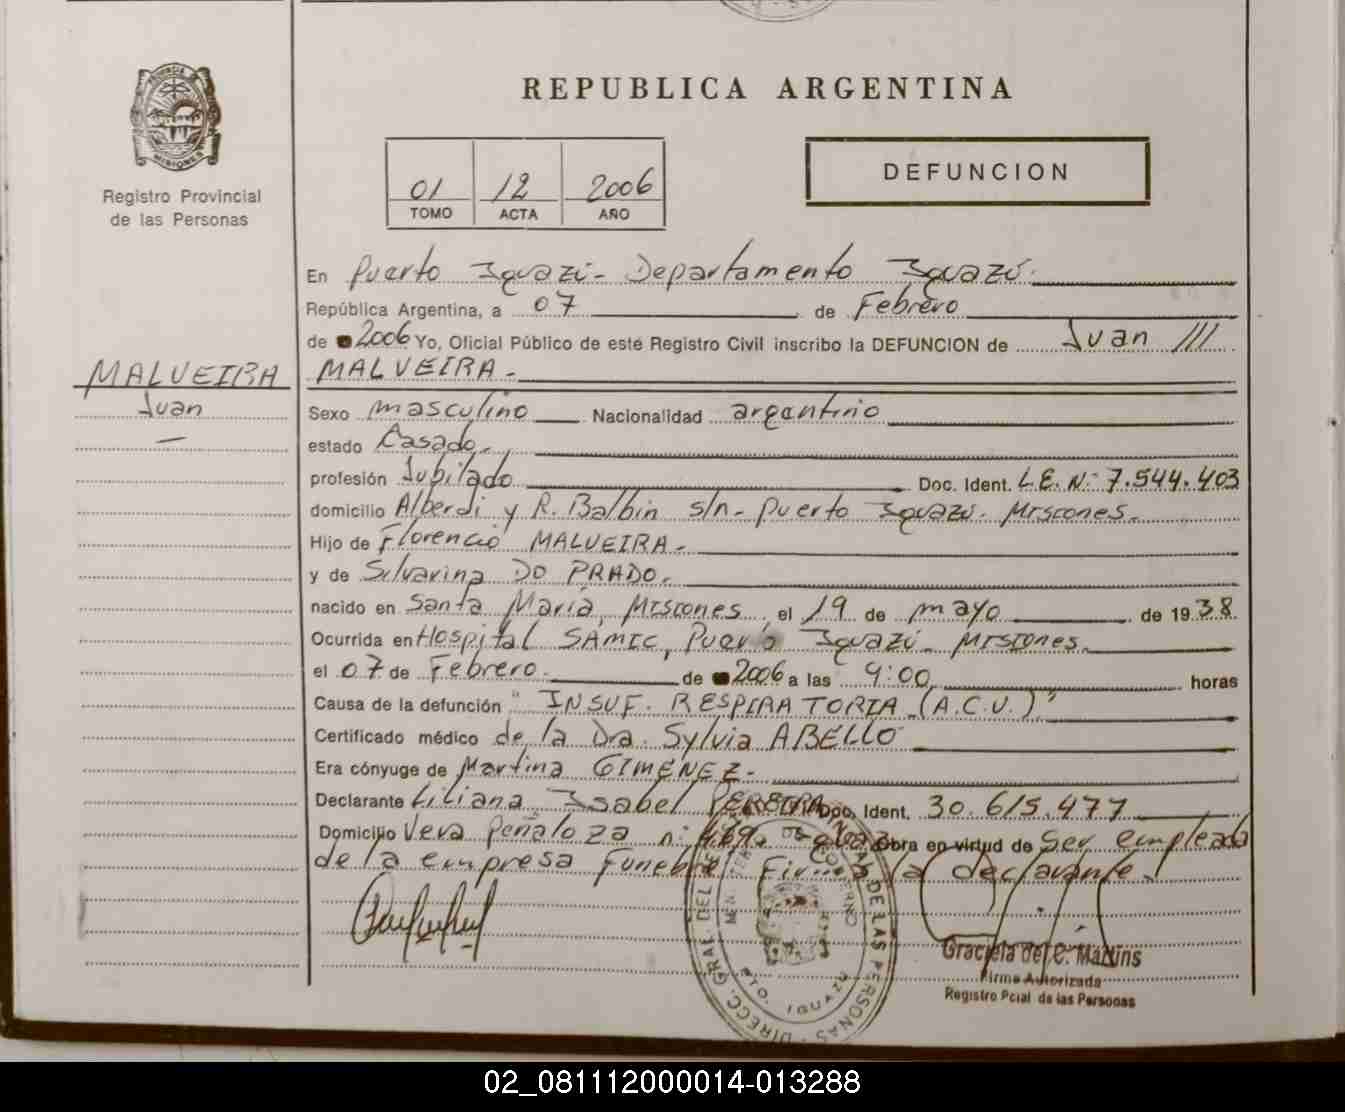 REPUBLICA ARGENTINA
PROVINCIA DE
MISIONES
Registro Provincial
de las Personas
01 12 2006
TOMO ACTA AÑO
DEFUNCION
En Puerto Iguazú - Departamento Iguazú.
República Argentina, a 07 de Febrero
de 2006 Yo, Oficial Público de este Registro Civil inscribo la DEFUNCION de Juan ///
MALVEIRA MALVEIRA -
Juan
Sexo masculino Nacionalidad argentino
estado Casado.
profesión Jubilado Doc. Ident. L.E. N: 7.544.403
domicilio Alberdi y R. Balbin s/n - Puerto Iguazú. Misiones.
Hijo de Florencio MALVEIRA -
y de Silvarina DO PRADO.
nacido en Santa María, Misiones, el 19 de mayo de 1938
Ocurrida en Hospital SAMIC, Puerto Iguazú - Misiones.
el 07 de Febrero. de 2006 a las 9:00 horas
Causa de la defunción " INSUF. RESPIRATORIA (A.C.V.)"
Certificado médico de la Dra. Sylvia ABELLO
Era cónyuge de Martina GIMENEZ -
Declarante Liliana Isabel PEREIRA Doc. Ident. 30.615.477
Domicilio Vera Peñaloza n: 469. Obra en virtud de Ser empleada
de la empresa Funebre. Firma la declarante.
DIRECC. GRAL. DEL DE LAS PERSONAS
GOBIERNO
PTO. IGUAZU
Graciela del C. Martins
Firma Autorizada
Registro Pcial de las Personas
02_081112000014-013288